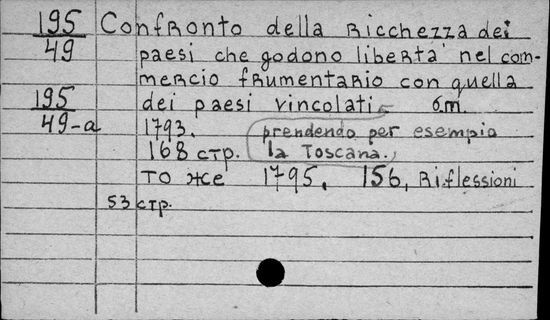 195 Confronto della Ricchezza dei
49 paesi che godono libertà nel com-
mercio frumentario con quella
195 dei paesi vincolati б.м.
49-a 1793. prendendo per esempio
168 стр. la Toscana.
То же 1795, 156, Riflessioni
53 стр.